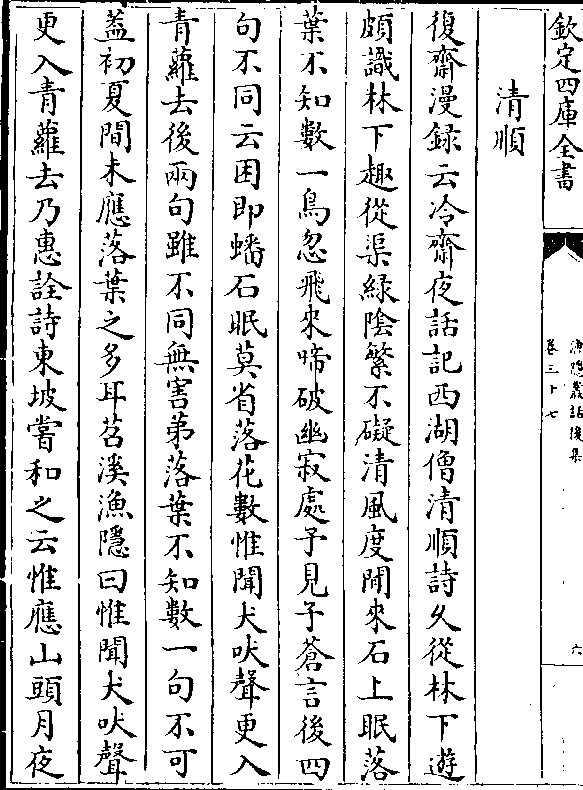 欽定四庫全書
漁隱叢話後集
卷三十七
六
清順
復齋漫録云冷齋夜話記西湖僧清順詩久從林下遊
頗識林下趣從渠緑陰繁不礙清風度閒來石上眠落
葉不知數一鳥忽飛來啼破幽寂處予見子蒼言後四
句不同云困即蟠石眠莫省落花數惟聞犬吠聲更入
青蘿去後兩句雖不同無害苐落葉不知數一句不可
盖初夏間未應落葉之多耳苕溪漁隱曰惟聞犬吠聲
更入青蘿去乃惠詮詩東坡嘗和之云惟應山頭月夜